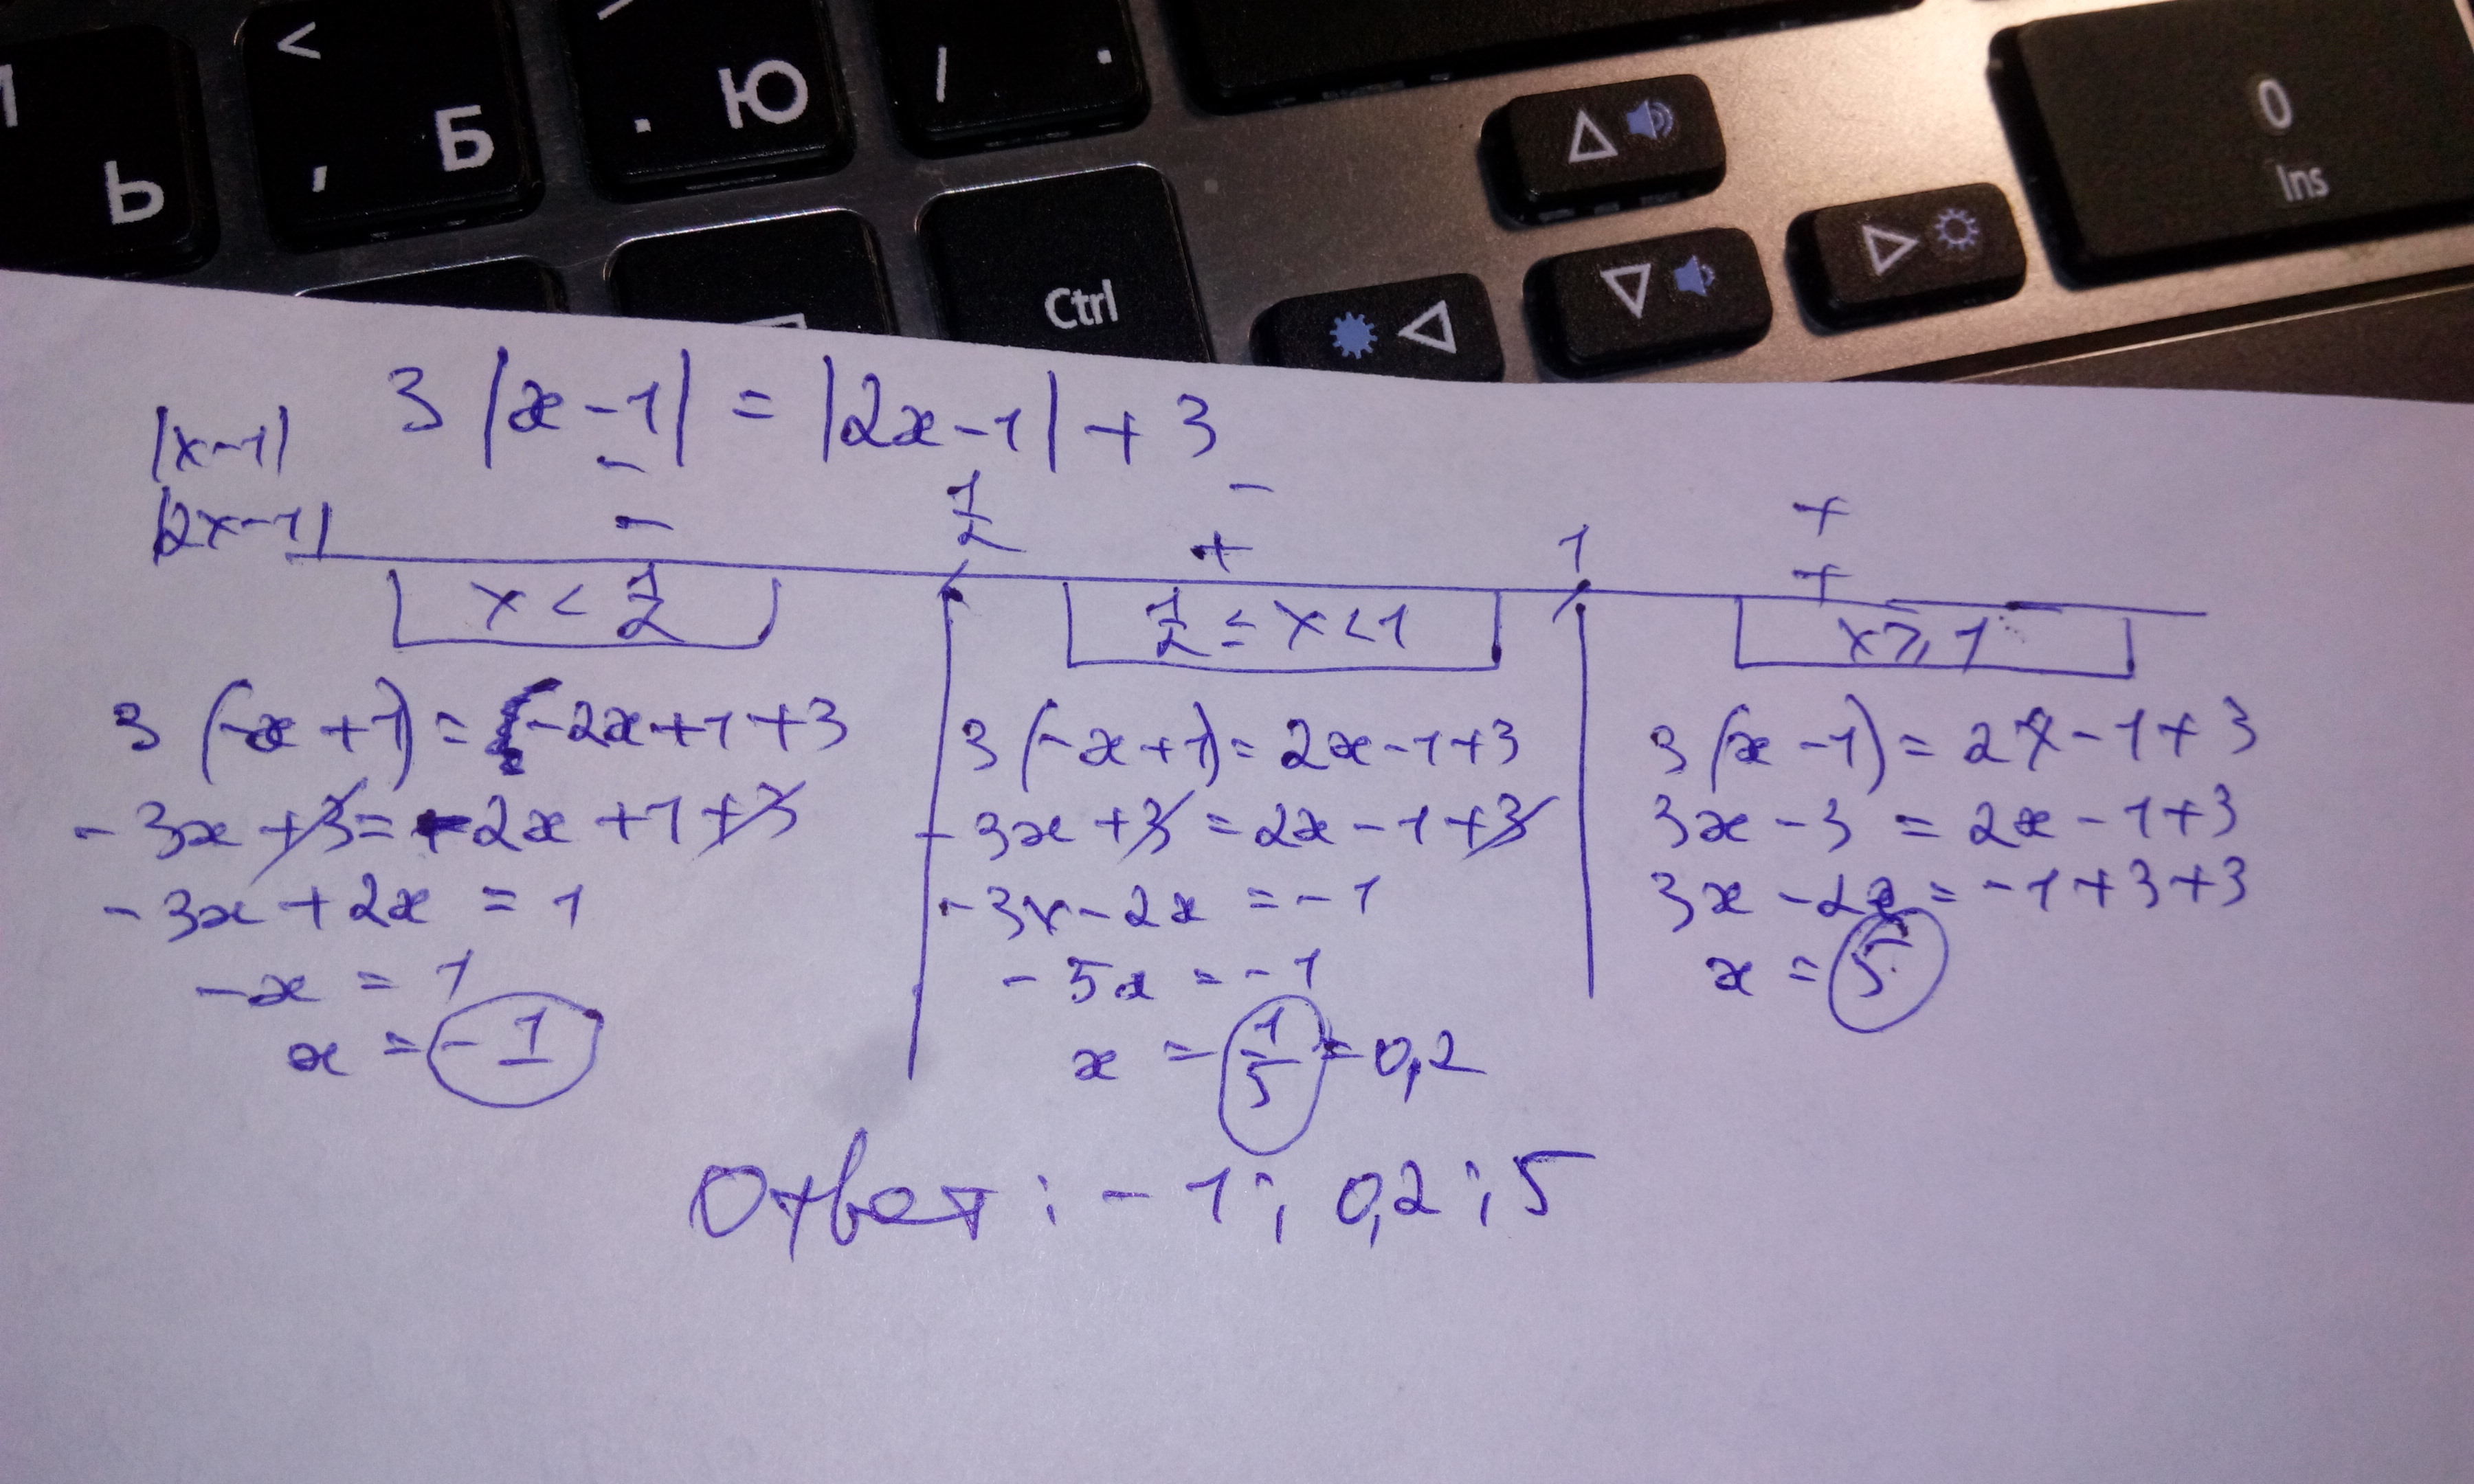 Ь
< , Б
. Ю
/ .
0
Ins
Ctrl
3|x-1| = |2x-1| + 3
|x-1| - - +
|2x-1| - 1/2 + 1 +
x < 1/2
1/2 ≤ x < 1
x ≥ 1
3(-x+1) = -2x+1+3
-3x+3 = -2x+1+3
-3x+2x = 1
-x = 1
x = -1
3(-x+1) = 2x-1+3
-3x+3 = 2x-1+3
-3x-2x = -1
-5x = -1
x = 1/5 = 0,2
3(x-1) = 2x-1+3
3x-3 = 2x-1+3
3x-2x = -1+3+3
x = 5
Ответ: -1; 0,2; 5